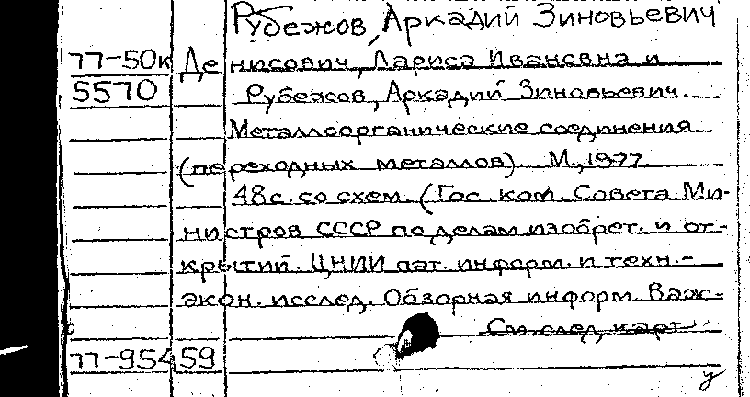 Рубежов, Аркадий Зиновьевич
77-50к Денисович, Лариса Ивановна и
5570 Рубежов, Аркадий Зиновьевич.
Металлоорганические соединения
(переходных металлов). М., 1977.
48с. со схем. (Гос. ком. Совета Ми-
нистров СССР по делам изобрет. и от-
крытий. ЦНИИ пат. информ. и техн.-
экон. исслед. Обзорная информ. Важ-
См. след. карт
77-95459